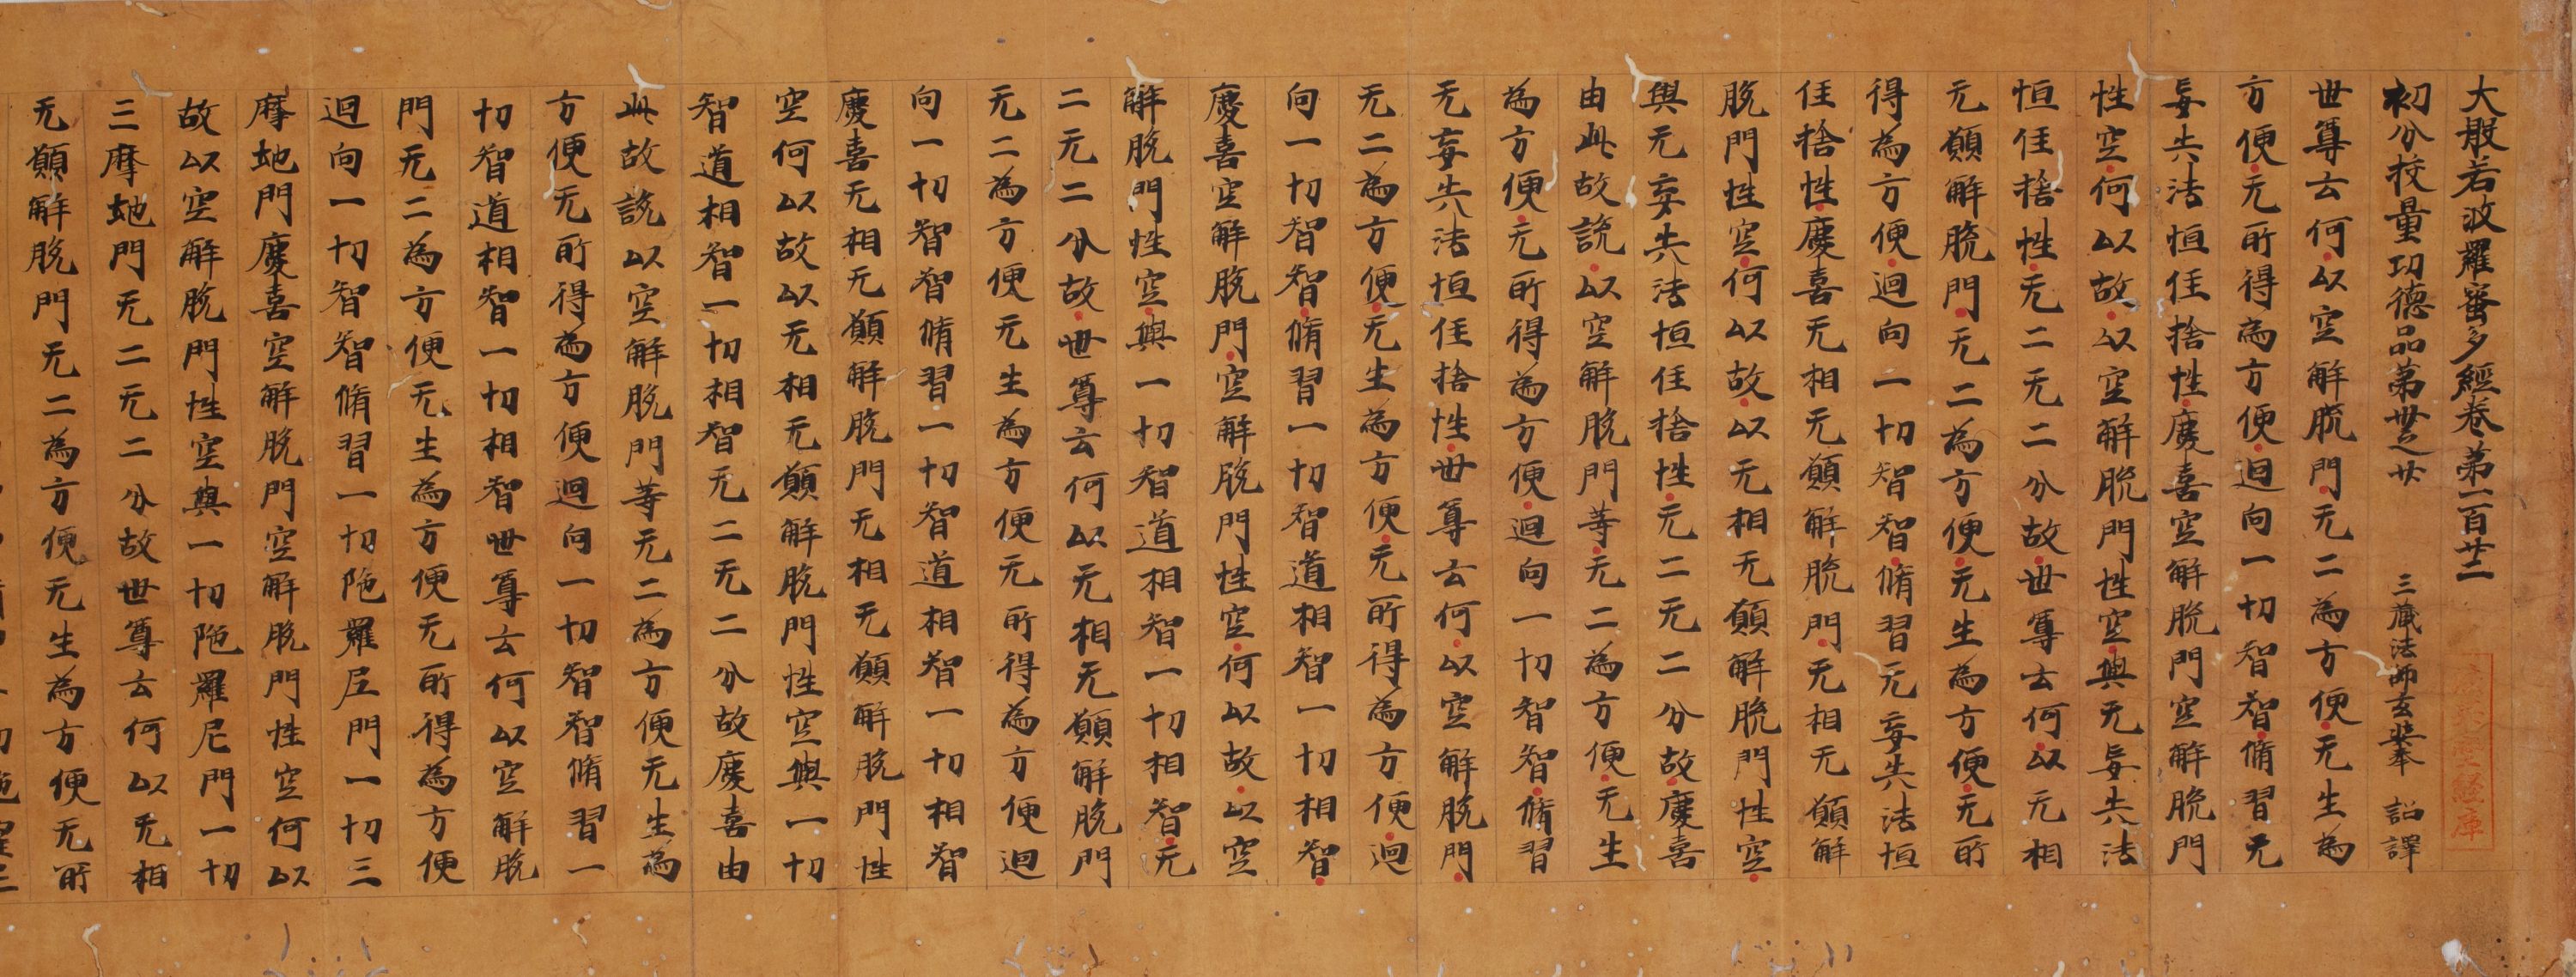 大般若波羅蜜多經卷苐一百廿二
初分挍量功德品苐卅之廿 三藏法師玄奘奉 詔譯
世尊云何以空解脫門无二為方便无生為
方便无所得為方便迴向一切智智脩習无
妄失法恒住捨性慶喜空解脫門空解脫門
性空何以故以空解脫門性空與无妄失法
恒住捨性无二无二分故世尊云何以无相
无願解脫門无二為方便无生為方便无所
得為方便迴向一切智智脩習无妄失法恒
住捨性慶喜无相无願解脫門无相无願解
脫門性空何以故以无相无願解脫門性空
與无妄失法恒住捨性无二无二分故慶喜
由此故說以空解脫門等无二為方便无生
為方便无所得為方便迴向一切智智脩習
无妄失法恒住捨性世尊云何以空解脫門
无二為方便无生為方便无所得為方便迴
向一切智智脩習一切智道相智一切相智
慶喜空解脫門空解脫門性空何以故以空
解脫門性空與一切智道相智一切相智无
二无二分故世尊云何以无相无願解脫門
无二為方便无生為方便无所得為方便迴
向一切智智脩習一切智道相智一切相智
慶喜无相无願解脫門无相无願解脫門性
空何以故以无相无願解脫門性空與一切
智道相智一切相智无二无二分故慶喜由
此故說以空解脫門等无二為方便无生為
方便无所得為方便迴向一切智智脩習一
切智道相智一切相智世尊云何以空解脫
門无二為方便无生為方便无所得為方便
迴向一切智智脩習一切陁羅尼門一切三
摩地門慶喜空解脫門空解脫門性空何以
故以空解脫門性空與一切陁羅尼門一切
三摩地門无二无二分故世尊云何以无相
无願解脫門无二為方便无生為方便无所